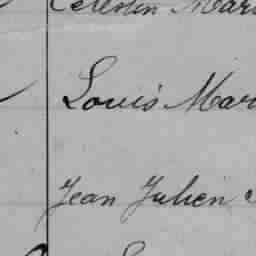 Celestin Mar
Louis Mar
Jean Julien